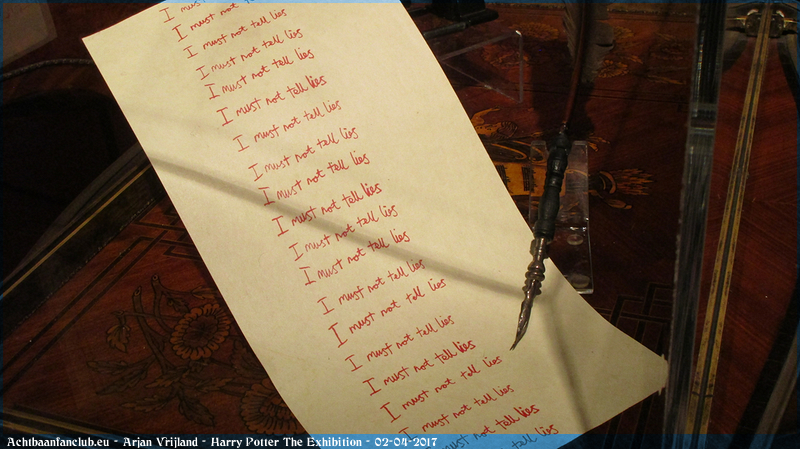 I must not
I must not tell lies
I must not tell lies
I must not tell lies
I must not tell lies
I must not tell lies
I must not tell lies
I must not tell lies
I must not tell lies
I must not tell lies
I must not tell lies
I must not tell lies
I must not tell lies
I must not tell lies
I must not tell lies
I must not tell lies
I must not tell lies
must not tell lies
tell lies
Achtbaanfanclub.eu - Arjan Vrijland - Harry Potter The Exhibition - 02-04-2017